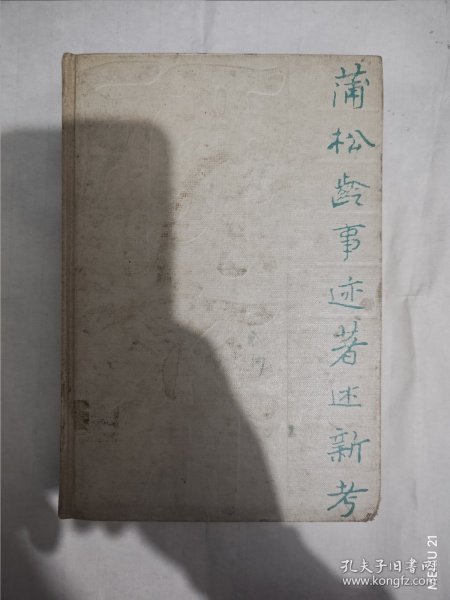 蒲松龄事迹著述新考
孔夫子旧书网
www.kongfz.com
MEIZU 21